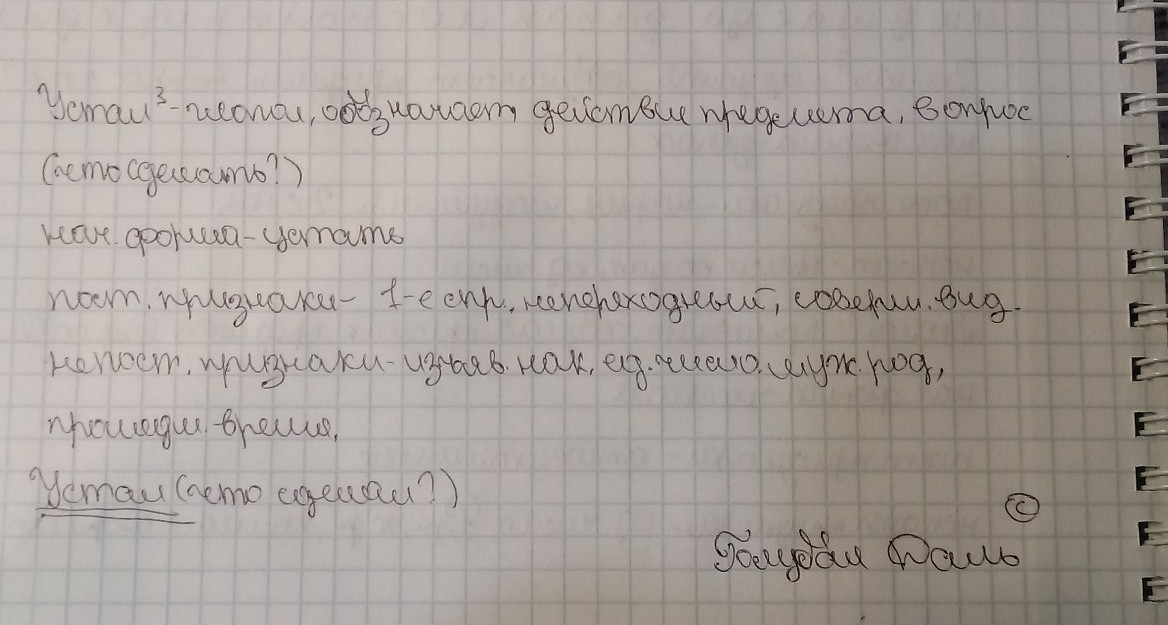 Устал³-глагол, обозначает действие предмета, вопрос
(что сделать?)
нач. форма-устать
пост. признаки- 1-е спр., непереходный, соверш. вид.
непост. признаки-изъяв. нак., ед. число, муж. род,
прошедш. время.
Устал (что сделал?)
©
Голубая Даль